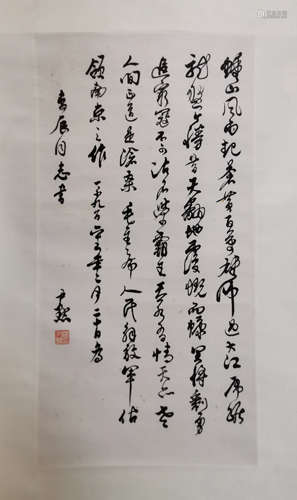 钟山风雨起苍黄百万雄师过大江虎踞
龙盘今胜昔天翻地覆慨而慷宜将剩勇
追穷寇不可沽名学霸王天若有情天亦老
人间正道是沧桑 毛主席 人民解放军占
领南京之作 一九六 年 月二十日为
同志书
尹默